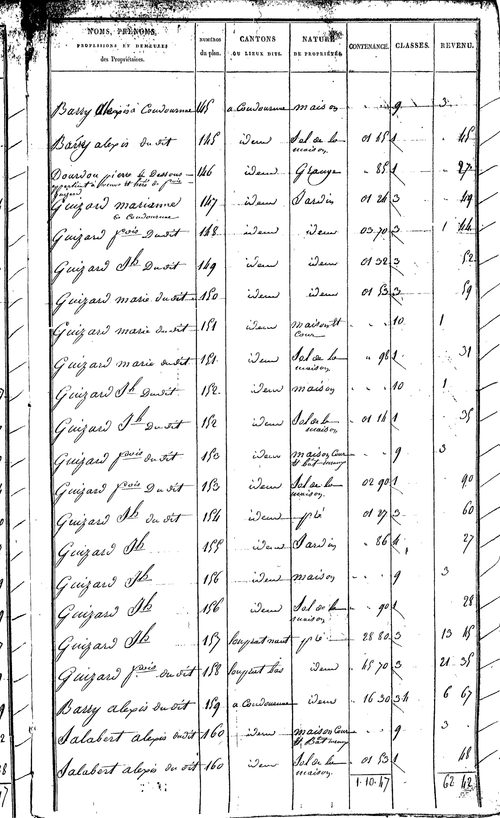 NOMS, PRÉNOMS, PROFESSIONS ET DEMEURES des Propriétaires. NUMÉROS du plan. CANTONS OU LIEUX DITS. NATURE DE PROPRIÉTÉ. CONTENANCE. CLASSES. REVENU.
Barry alexis a Coudournac 145 a Coudournac maison 9 3
Barry alexis du dit 145 idem Sol de la maison 01 45 1 45
Dourdou pierre 146 idem Grange 85 1 27
Guizard marianne a Coudournac 147 idem Jardin 01 24 3 49
Guizard fcois Du dit 148 idem idem 03 70 3 1 44
Guizard Jh Du dit 149 idem idem 01 32 3 52
Guizard marie du dit 150 idem idem 01 53 3 59
Guizard marie du dit 151 idem maison et Cour 10 1
Guizard marie du dit 151 idem Sol de la maison 96 1 31
Guizard Jh Du dit 152 idem maison 10 1
Guizard Jh Du dit 152 idem Sol de la maison 01 14 1 35
Guizard fcois du dit 153 idem maison Cour et bât 9 3
Guizard fcois Du dit 153 idem Sol de la maison 02 90 1 90
Guizard Jh du dit 154 idem pré 01 27 3 60
Guizard Jh 155 idem Jardin 86 4 27
Guizard Jh 156 idem maison 9 3
Guizard Jh 156 idem Sol de la maison 90 1 28
Guizard Jh 157 pré 28 80 3 13 45
Guizard fcois du dit 158 bas idem 45 70 3 21 35
Barry alexis du dit 159 a Coudournac idem 16 30 3 4 6 67
Salabert alexis du dit 160 idem maison Cour et Bât 9 3
Salabert alexis du dit 160 idem Sol de la maison 01 53 1 48
1.10.47 62 42